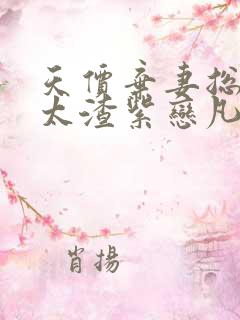 天價棄妻总
太渣紫戀凡
肖揚